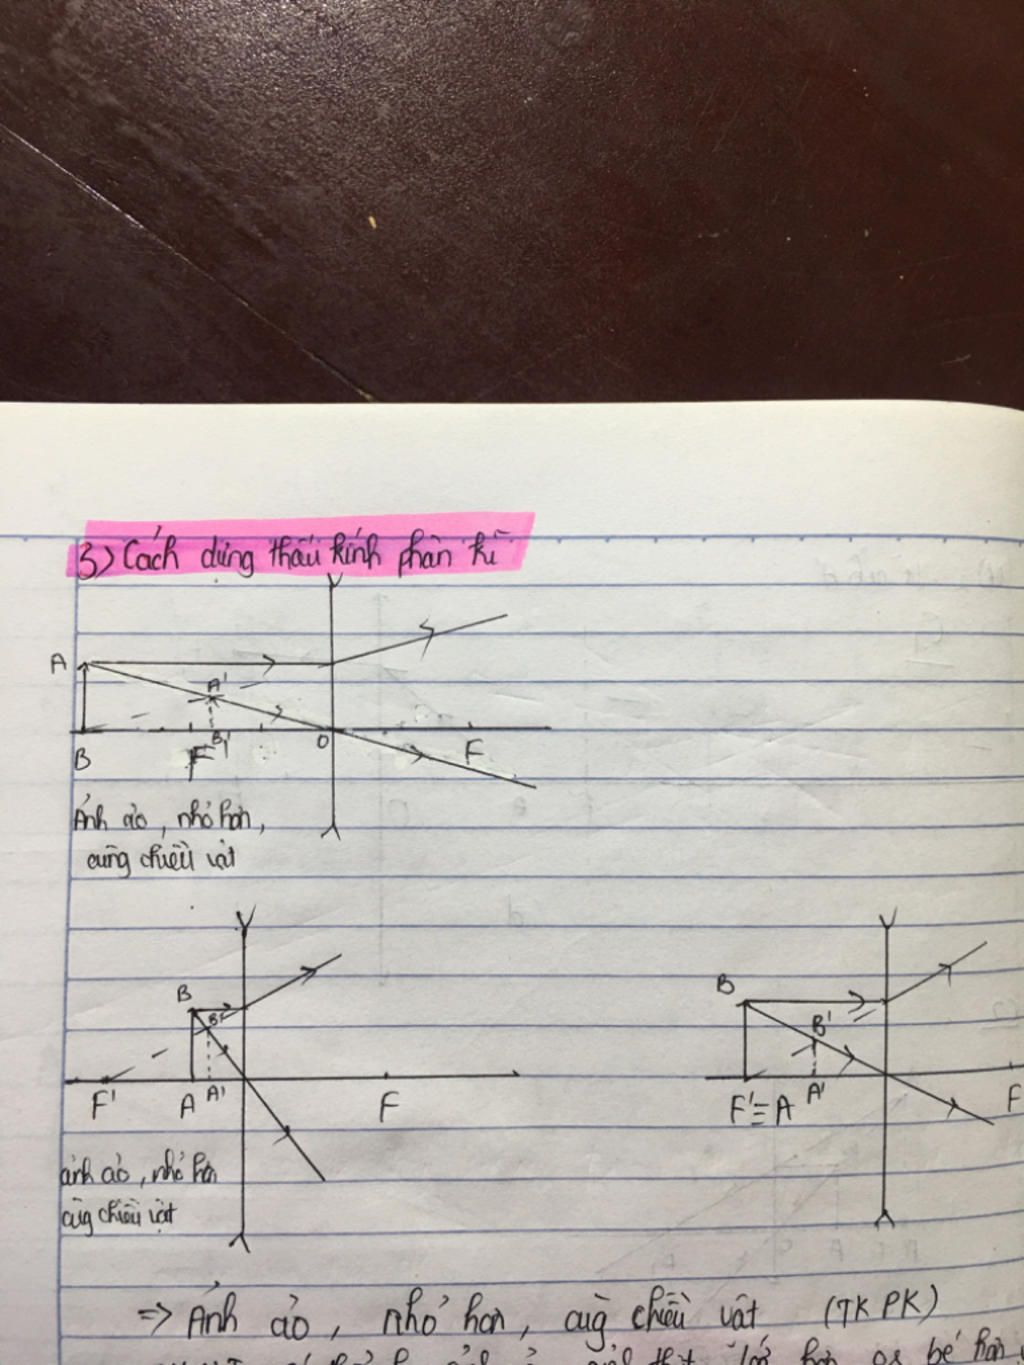 3) Cách dựng thấu kính phân kì
A
A'
B
F'
B'
O
F
Ảnh ảo, nhỏ hơn,
cùng chiều vật
B
B'
F'
A
A'
F
ảnh ảo, nhỏ hơn
cùg chiều vật
B
B'
F'≡A
A'
F
=> Ảnh ảo, nhỏ hơn, cùg chiều vật (TKPK)
bé hơn